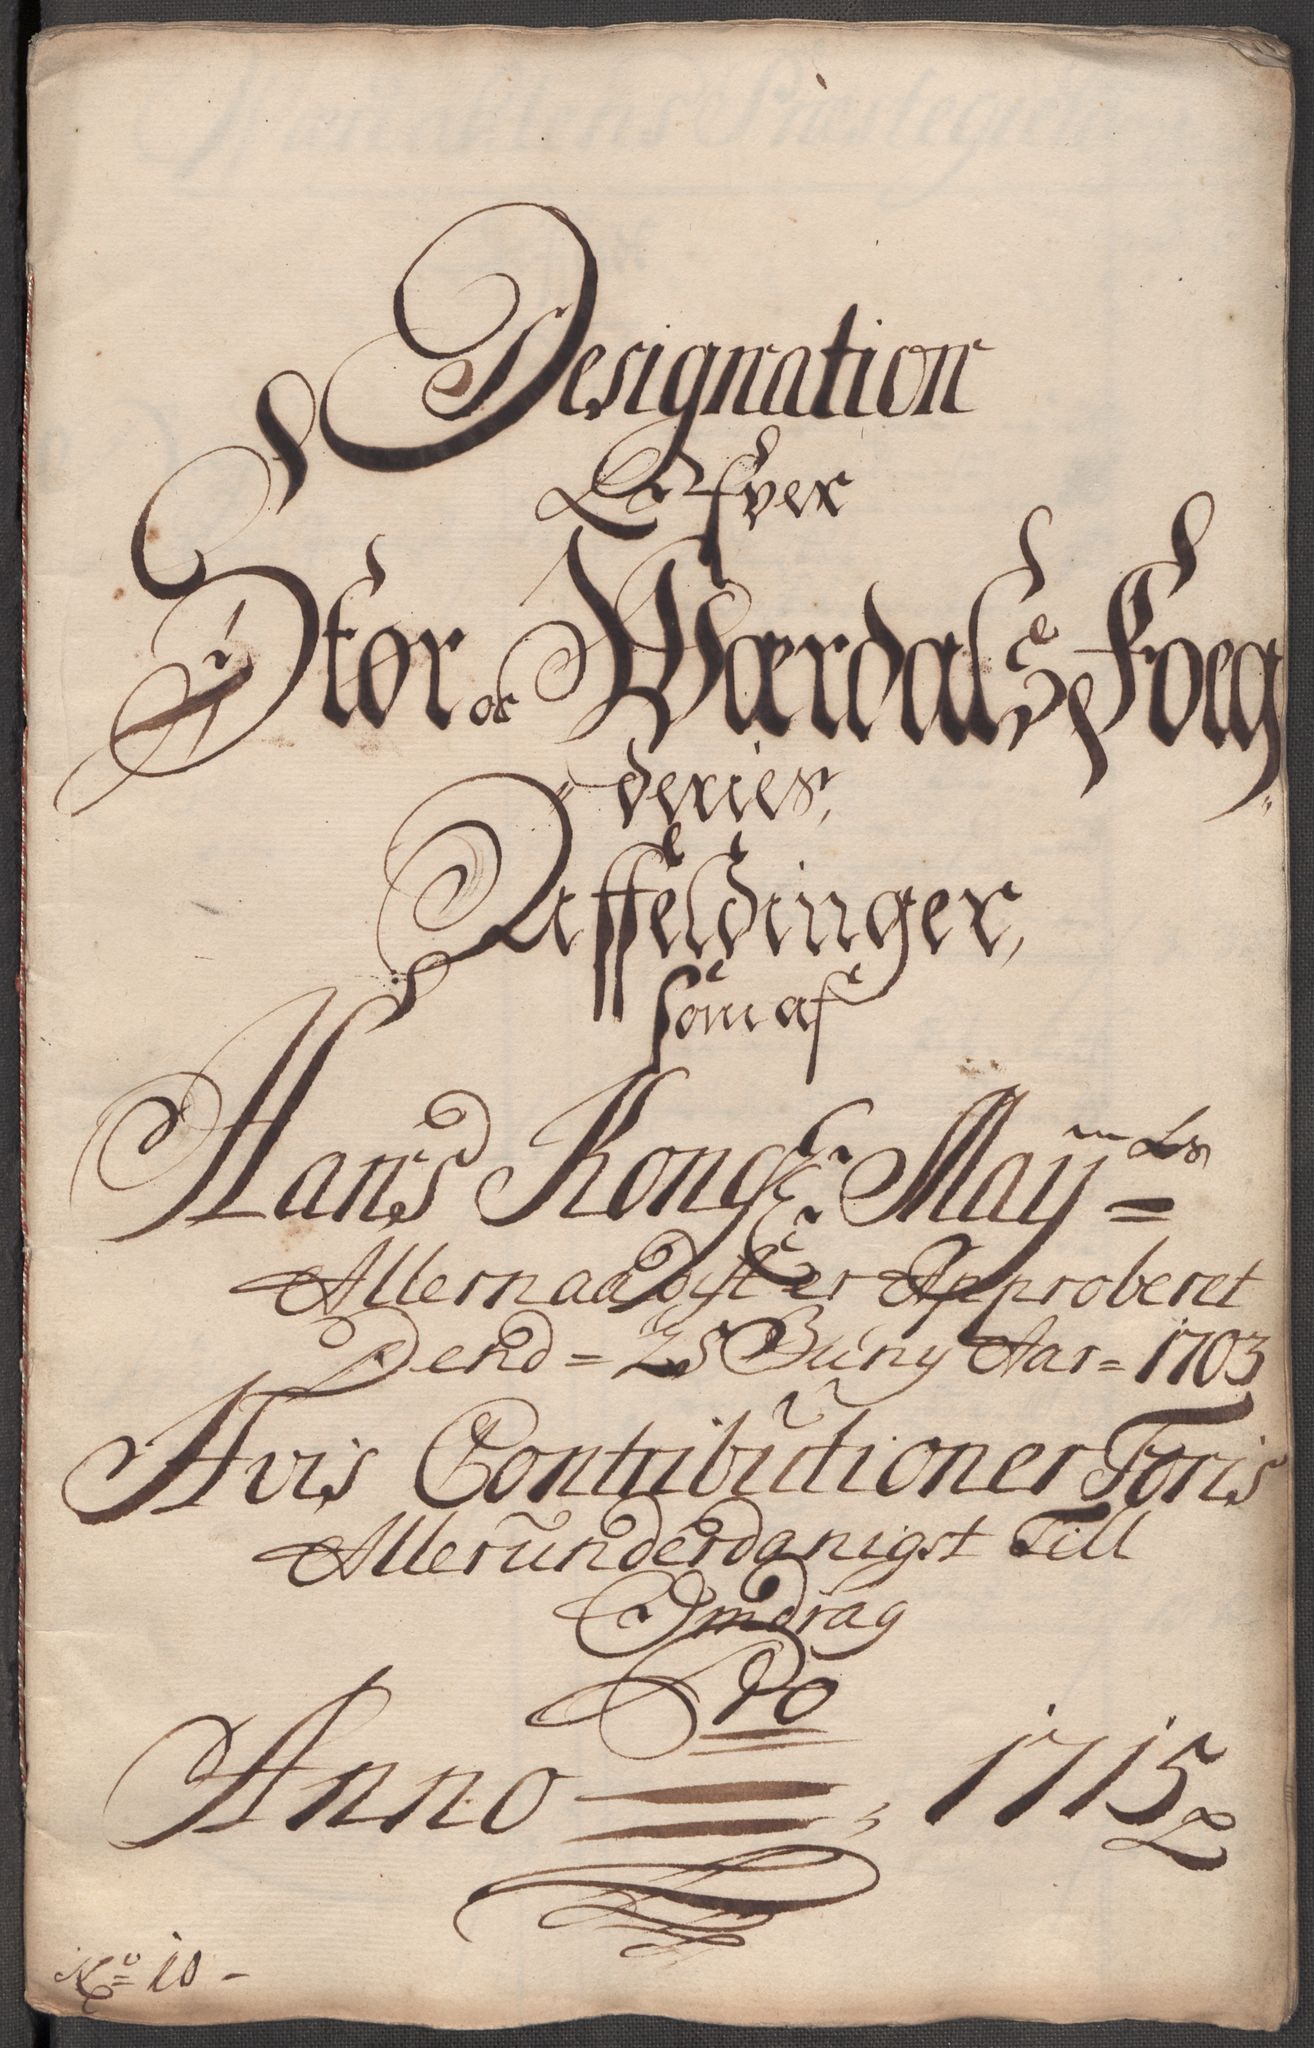 Designation
Ofver
Stør oc Wærdals Foeg
deries,
Affeldinger,
som af
Hans Kongl: Mayts
Allernaadigst er Approberet
Dend = 25 Juny Aar = 1703
Hvis Contributioner Foris
Allerunderdanigst Till
Omdrag
Pro
Anno 1715
No 10 -